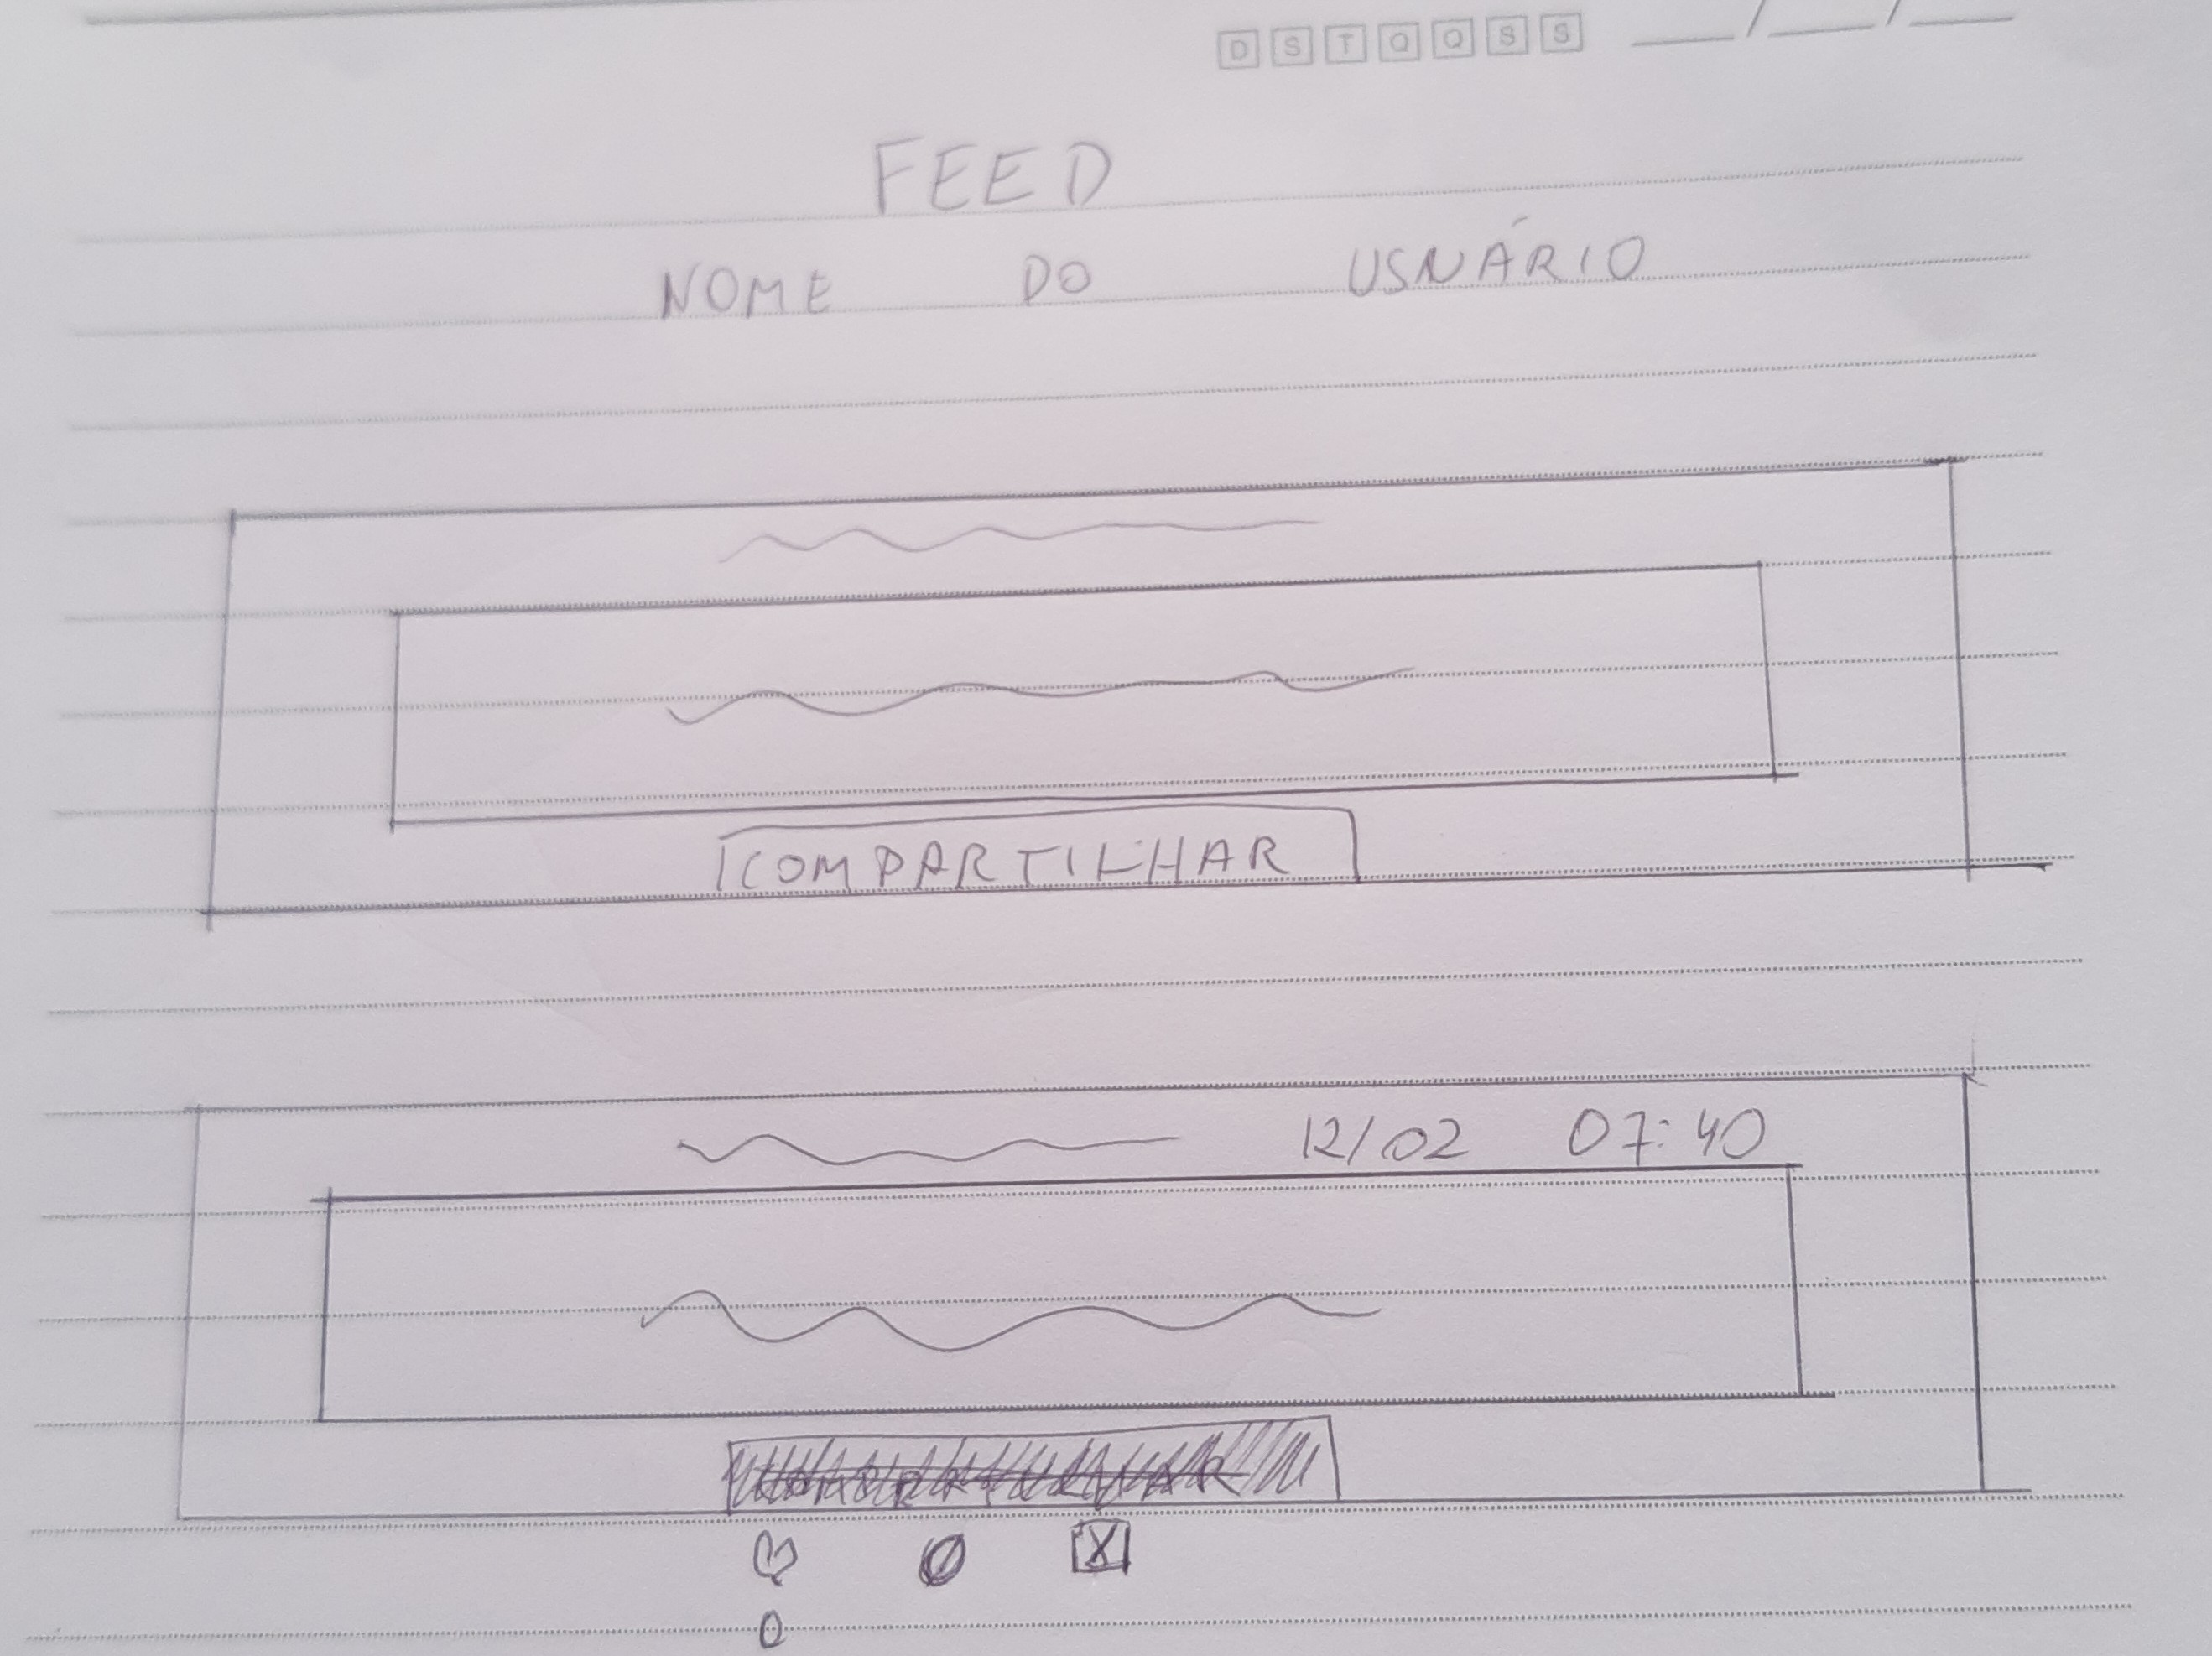 D S T Q Q S S __/__/__
FEED
NOME DO USNÁRIO
COMPARTILHAR
12/02 07:40
0